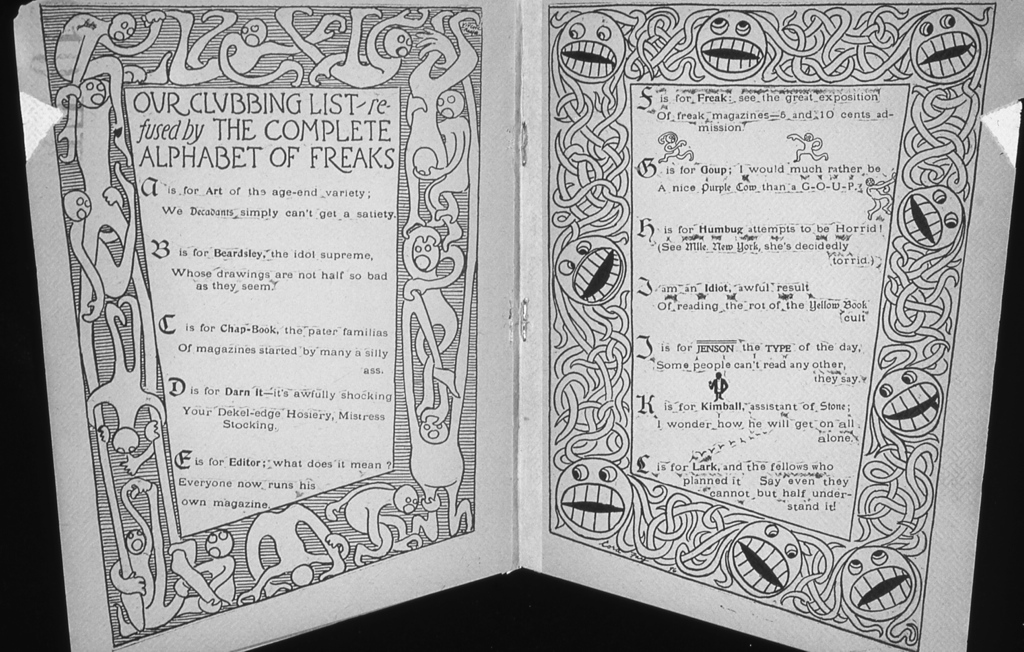 OUR CLUBBING LIST - re-
fused by THE COMPLETE
ALPHABET OF FREAKS
A is for Art of the age-end variety;
We Decadants simply can't get a satiety.
B is for Beardsley, the idol supreme,
Whose drawings are not half so bad
as they seem.
C is for Chap-Book, the pater familias
Of magazines started by many a silly
ass.
D is for Darn it—it's awfully shocking
Your Dekel-edge Hosiery, Mistress
Stocking.
E is for Editor; what does it mean?
Everyone now runs his
own magazine.
F is for Freak; see the great exposition
Of freak magazines—5 and 10 cents ad-
mission.
G is for Goup; I would much rather be
A nice Purple Cow than a G-O-U-P?
H is for Humbug attempts to be Horrid!
(See Mlle. New York, she's decidedly
torrid.)
I am an Idiot, awful result
Of reading the rot of the Yellow Book
cult
J is for JENSON the TYPE of the day,
Some people can't read any other,
they say.
K is for Kimball, assistant of Stone;
I wonder how he will get on all
alone.
L is for Lark, and the fellows who
planned it Say even they
cannot but half under-
stand it!